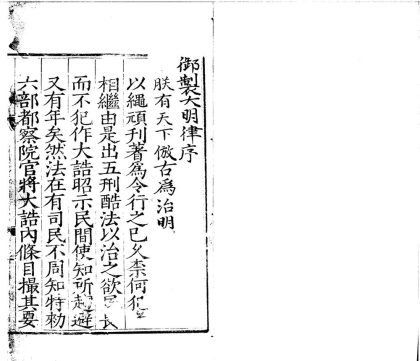 御製大明律序
朕有天下倣古爲治明
以繩頑刊著爲令行之已久柰何犯
相繼由是出五刑酷法以治之欲民
而不犯作大誥昭示民間使知所趨避
又有年矣然法在有司民不周知特勑
六部都察院官將大誥內條目撮其要